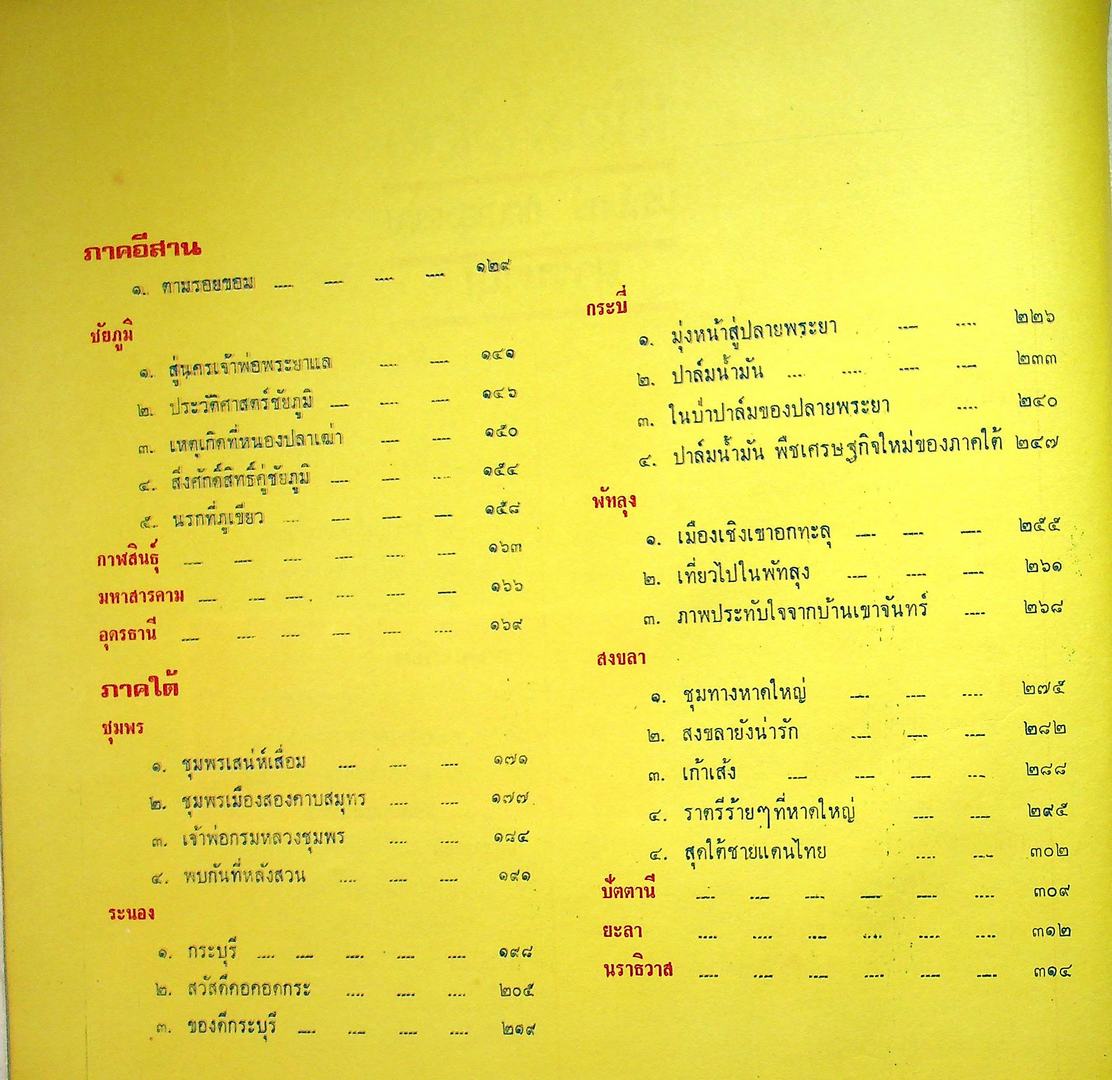 ภาคอีสาน
๑. ตามรอยขอม .... .... .... .... ๑๒๙
ชัยภูมิ
๑. สู่นครเจ้าพ่อพระยาแล .... .... ๑๔๑
๒. ประวัติศาสตร์ชัยภูมิ .... .... .... ๑๔๖
๓. เหตุเกิดที่หนองปลาเฒ่า .... .... ๑๕๐
๔. สิ่งศักดิ์สิทธิ์คู่ชัยภูมิ .... .... .... ๑๕๔
๕. นรกที่ภูเขียว .... .... .... .... ๑๕๘
กาฬสินธุ์ .... .... .... .... .... .... ๑๖๓
มหาสารคาม .... .... .... .... .... .... ๑๖๖
อุดรธานี .... .... .... .... .... .... ๑๖๙
ภาคใต้
ชุมพร
๑. ชุมพรเสน่ห์เสื่อม .... .... .... ๑๗๑
๒. ชุมพรเมืองสองคาบสมุทร .... .... ๑๗๗
๓. เจ้าพ่อกรมหลวงชุมพร .... .... ๑๘๔
๔. พบกันที่หลังสวน .... .... .... ๑๙๑
ระนอง
๑. กระบุรี .... .... .... .... .... ๑๙๘
๒. สวัสดีคอคอดกระ .... .... .... ๒๐๕
๓. ของดีกระบุรี .... .... .... .... ๒๑๙
กระบี่
๑. มุ่งหน้าสู่ปลายพระยา .... .... ๒๒๖
๒. ปาล์มน้ำมัน .... .... .... .... ๒๓๓
๓. ในป่าปาล์มของปลายพระยา .... ๒๔๐
๔. ปาล์มน้ำมัน พืชเศรษฐกิจใหม่ของภาคใต้ ๒๔๗
พัทลุง
๑. เมืองเชิงเขาอกทะลุ .... .... .... ๒๕๕
๒. เที่ยวไปในพัทลุง .... .... .... ๒๖๑
๓. ภาพประทับใจจากบ้านเขาจันทร์ .... ๒๖๘
สงขลา
๑. ชุมทางหาดใหญ่ .... .... .... ๒๗๕
๒. สงขลายังน่ารัก .... .... .... ๒๘๒
๓. เก้าเส้ง .... .... .... .... ๒๘๘
๔. ราตรีร้ายๆที่หาดใหญ่ .... .... ๒๙๕
๔. สุดใต้ชายแดนไทย .... .... ๓๐๒
ปัตตานี .... .... .... .... .... .... ๓๐๙
ยะลา .... .... .... .... .... .... ๓๑๒
นราธิวาส .... .... .... .... .... .... ๓๑๔